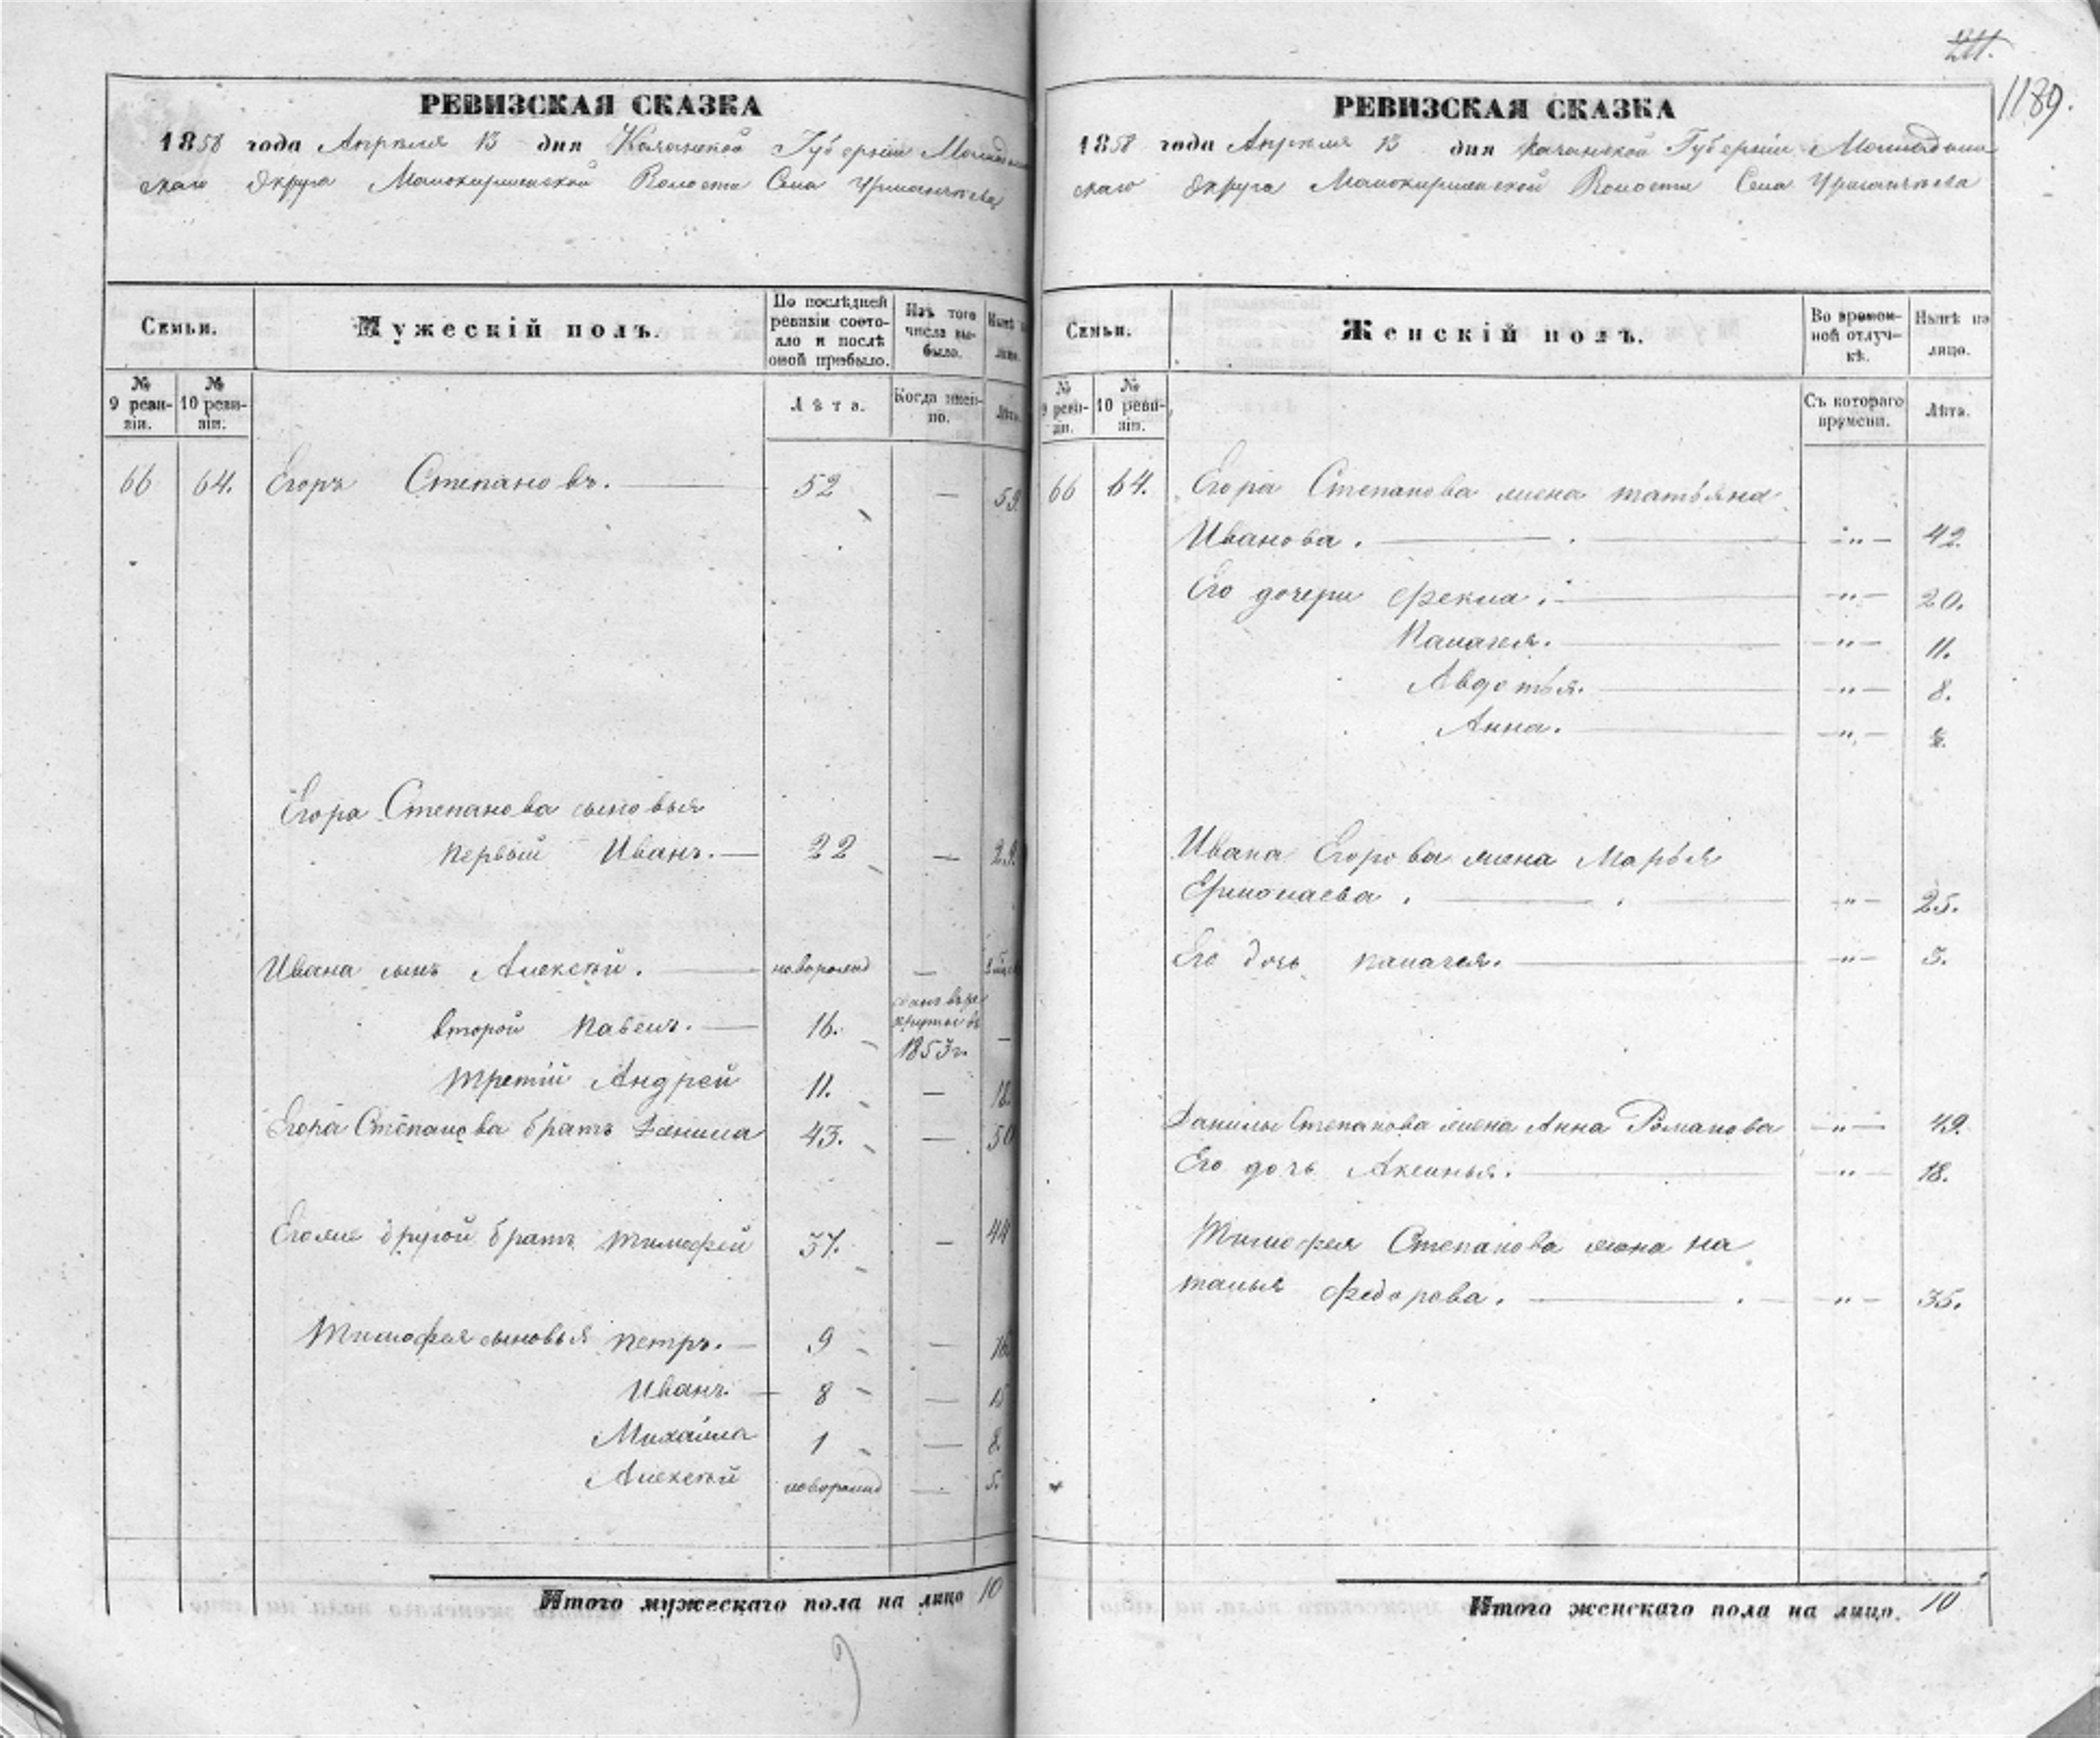 211.
1189.
РЕВИЗСКАЯ СКАЗКА
1858 года Апреля 13 дня Казанской Губернии Мамадыш
скаго Округа Малокирменской Волости Села Урманчеева
Семьи.
Мужескій полъ.
По послѣдней ревизіи состояло и послѣ оной прибыло.
Изъ того числа выбыло.
Нынѣ на лицо.
№ 9 ревизіи.
№ 10 ревизіи.
Лѣта.
Когда именно.
Лѣта.
66 64. Егоръ Степановъ. 52 — 59.
Егора Степанова сыновья
первый Иванъ. — 22 — 29.
Ивана сынъ Алексѣй. новорожд —
второй Павелъ. — 16. сданъ въ рекруты въ 1853 г. —
третій Андрей 11. — 18.
Егора Степанова братъ Данила 43. — 50
Егоже другой братъ Тимофей 37. — 44
Тимофея сыновья Петръ. — 9 — 16
Иванъ. — 8 — 15
Михайла 1 — 8.
Алексѣй новорожд — 5.
Итого мужескаго пола на лицо 10
РЕВИЗСКАЯ СКАЗКА
1858 года Апреля 13 дня Казанской Губерніи Мамадыш
скаго Округа Малокирменской Волости Села Урманчеева
Семьи.
Женскій полъ.
Во временной отлучкѣ.
Нынѣ на лицо.
№ 9 ревизіи.
№ 10 ревизіи.
Съ котораго времени.
Лѣта.
66 64. Егора Степанова жена татьяна
Иванова. — " — 42.
Его дочери Фекла. — " — 20.
Палагея. — " — 11.
Авдотья. — " — 8.
Анна. — " — ½.
Ивана Егорова жена Марья
Ермолаева. — " — 25.
Его дочь Палагея. — " — 5.
Данилы Степанова жена Анна Романова — " — 49.
Его дочь Аксинья. — " — 18.
Тимофея Степанова жена На
талья Федорова. — " — 35.
Итого женскаго пола на лицо. 10